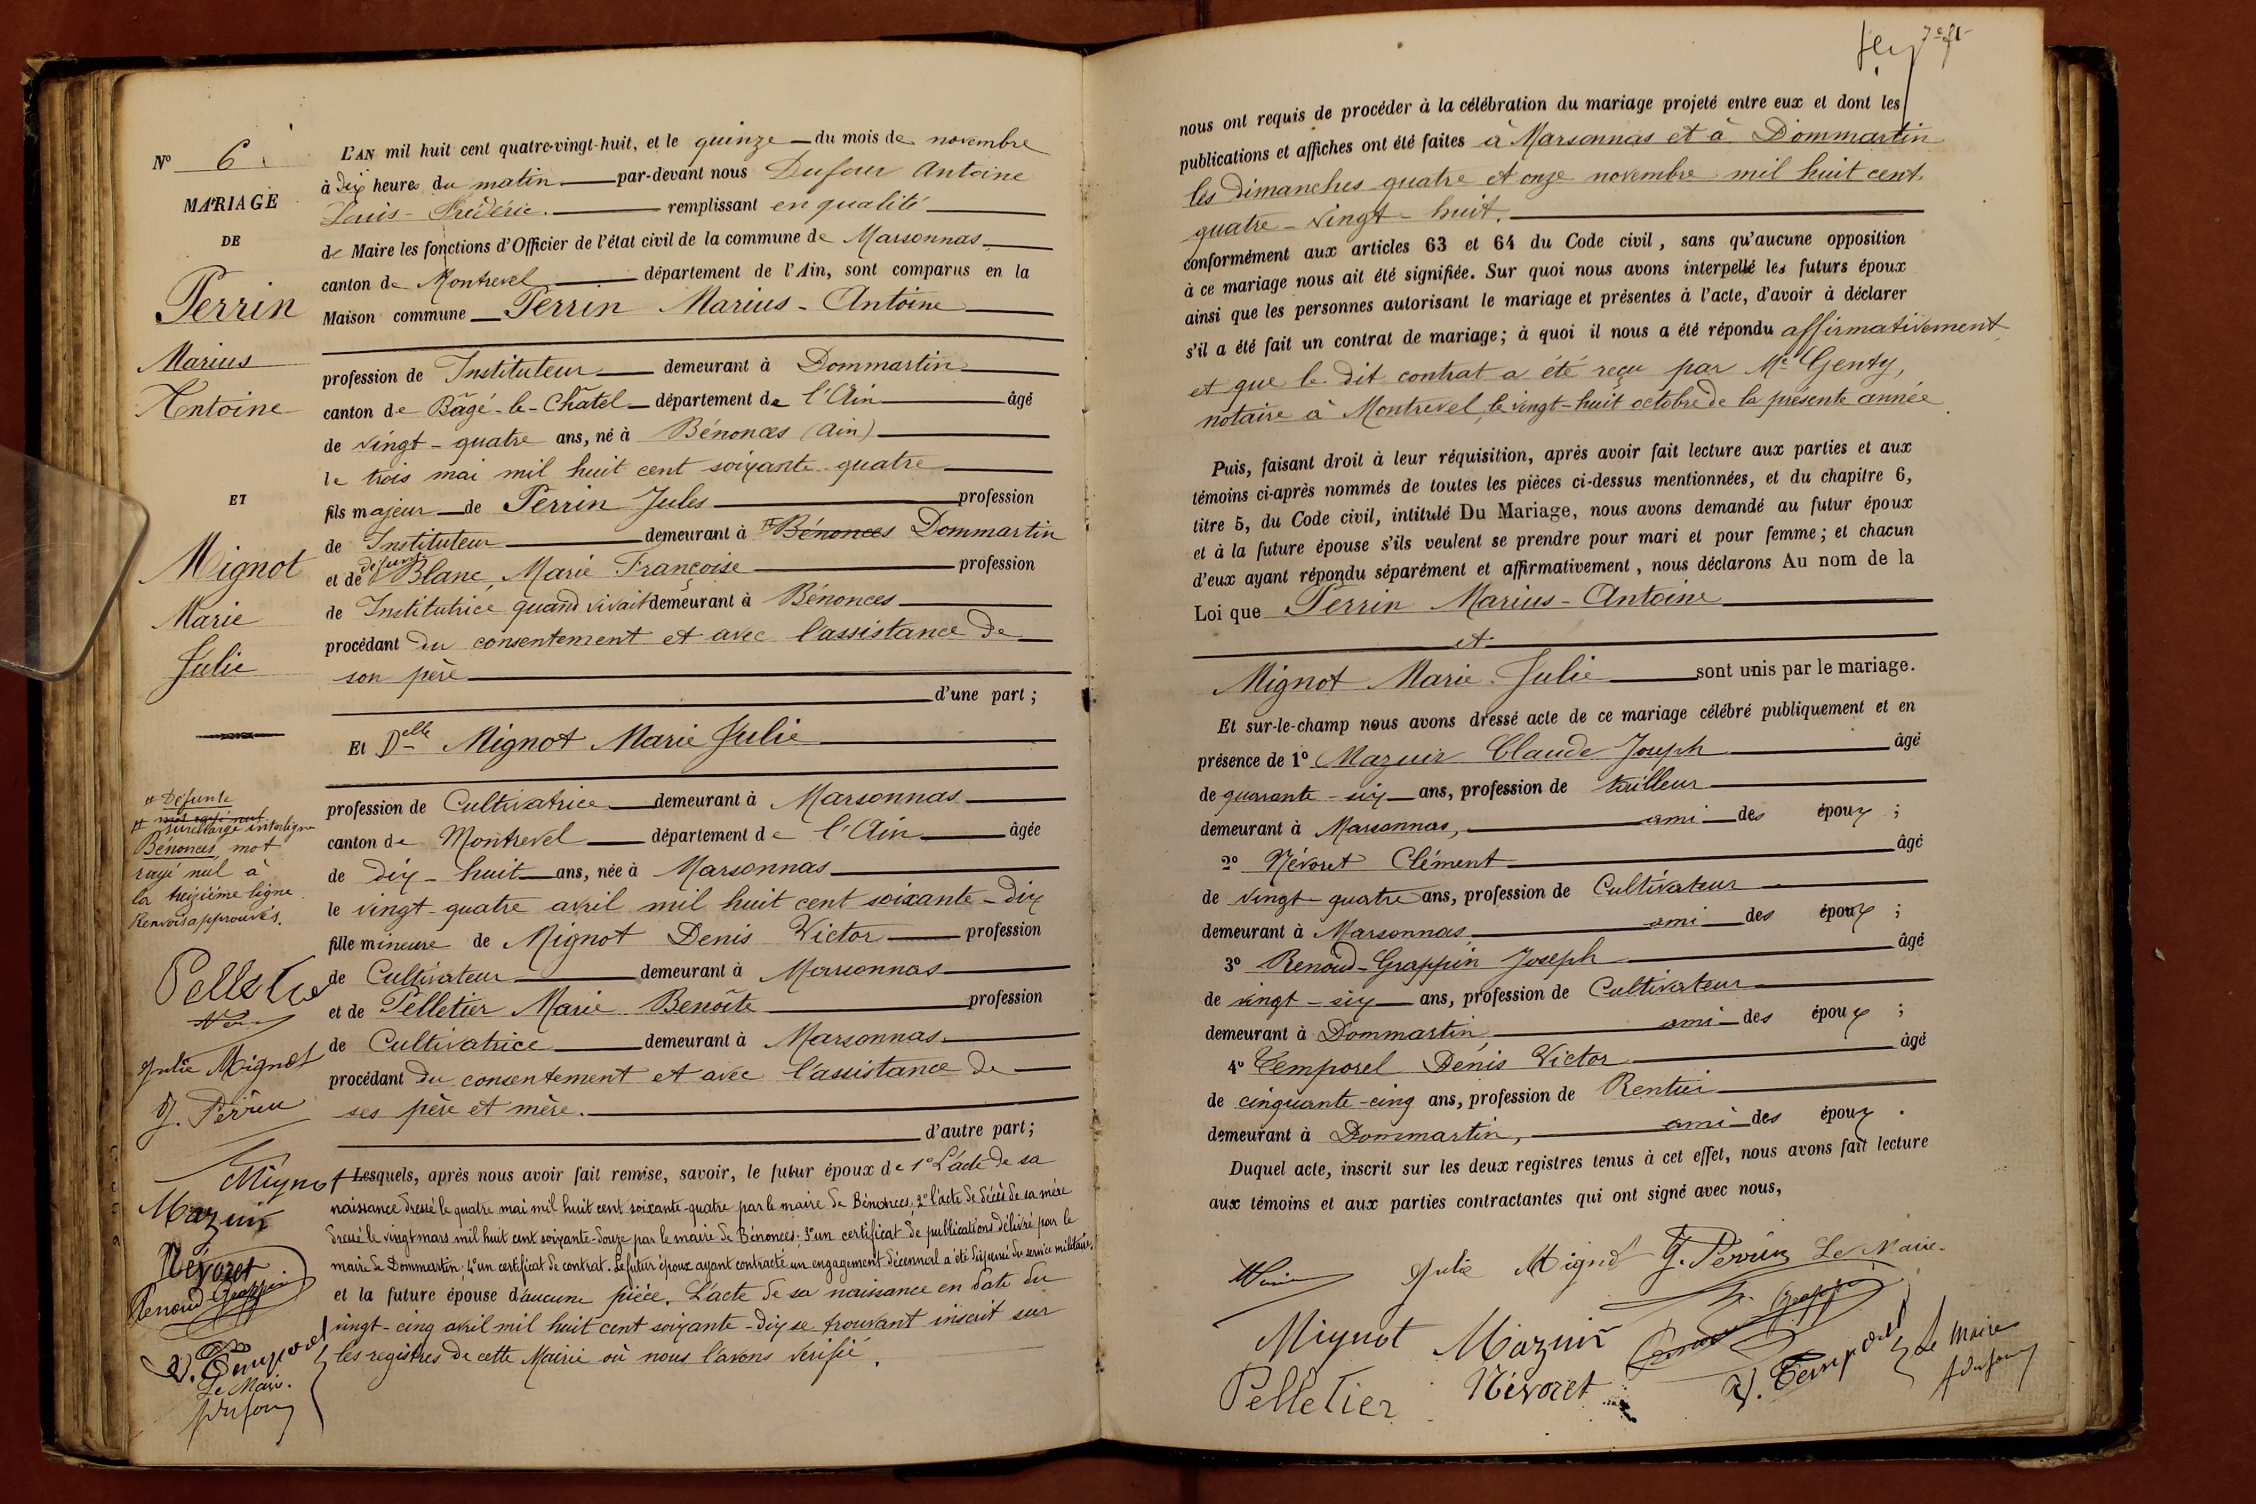 N° 6
MARIAGE
DE
Perrin
Marius
Antoine
ET
Mignot
Marie
Julie
Défunte
surchargé interligne
Bénonces, mot
rayé nul à
la treizième ligne
Renvois approuvés.
Julie Mignot
J. Perrin
Mignot
Mazuir
Névoret
Renoud-Grappin
D. Temporel
Le Maire.
ADufour
L'AN mil huit cent quatre-vingt-huit, et le quinze du mois de novembre
à dix heures du matin par-devant nous Dufour Antoine
Louis-Frédéric. remplissant en qualité
de Maire les fonctions d'Officier de l'état civil de la commune de Marsonnas
canton de Montrevel département de l'Ain, sont comparus en la
Maison commune Perrin Marius-Antoine
profession de Instituteur demeurant à Dommartin
canton de Bâgé-le-Châtel département de l'Ain âgé
de vingt-quatre ans, né à Bénonces (Ain)
le trois mai mil huit cent soixante quatre
fils majeur de Perrin Jules profession
de Instituteur demeurant à Bénonces Dommartin
et de défunte Blanc, Marie Françoise profession
de Institutrice quand vivait demeurant à Bénonces
procédant du consentement et avec l'assistance de
son père
d'une part;
Et Delle Mignot Marie Julie
profession de Cultivatrice demeurant à Marsonnas
canton de Montrevel département de l'Ain âgée
de dix-huit ans, née à Marsonnas
le vingt-quatre avril mil huit cent soixante-dix
fille mineure de Mignot Denis Victor profession
de Cultivateur demeurant à Marsonnas
et de Pelletier Marie Benoîte profession
de Cultivatrice demeurant à Marsonnas
procédant du consentement et avec l'assistance de
ses père et mère.
d'autre part;
Lesquels, après nous avoir fait remise, savoir, le futur époux de 1° L'acte de sa
naissance dressé le quatre mai mil huit cent soixante-quatre par le maire de Bénonces; 2° l'acte de décès de sa mère
dressé le vingt mars mil huit cent soixante-douze par le maire de Bénonces; 3° un certificat de publications délivré par le
maire de Dommartin; 4° un certificat de contrat. Le futur époux ayant contracté un engagement décennal a été dispensé du service militaire.
et la future épouse d'aucune pièce. L'acte de sa naissance en date du
vingt-cinq avril mil huit cent soixante-dix se trouvant inscrit sur
les registres de cette Mairie où nous l'avons vérifié.
nous ont requis de procéder à la célébration du mariage projeté entre eux et dont les
publications et affiches ont été faites à Marsonnas et à Dommartin
les dimanches quatre et onze novembre mil huit cent
quatre-vingt-huit.
conformément aux articles 63 et 64 du Code civil, sans qu'aucune opposition
à ce mariage nous ait été signifiée. Sur quoi nous avons interpellé les futurs époux
ainsi que les personnes autorisant le mariage et présentes à l'acte, d'avoir à déclarer
s'il a été fait un contrat de mariage; à quoi il nous a été répondu affirmativement
et que le dit contrat a été reçu par Me Genty,
notaire à Montrevel, le vingt-huit octobre de la présente année
Puis, faisant droit à leur réquisition, après avoir fait lecture aux parties et aux
témoins ci-après nommés de toutes les pièces ci-dessus mentionnées, et du chapitre 6,
titre 5, du Code civil, intitulé Du Mariage, nous avons demandé au futur époux
et à la future épouse s'ils veulent se prendre pour mari et pour femme; et chacun
d'eux ayant répondu séparément et affirmativement, nous déclarons Au nom de la
Loi que Perrin Marius-Antoine
et
Mignot Marie Julie sont unis par le mariage.
Et sur-le-champ nous avons dressé acte de ce mariage célébré publiquement et en
présence de 1° Mazuir Claude Joseph âgé
de quarante-six ans, profession de tailleur
demeurant à Marsonnas, ami des époux;
2° Névoret Clément âgé
de vingt-quatre ans, profession de Cultivateur
demeurant à Marsonnas ami des époux;
3° Renoud-Grappin Joseph âgé
de vingt-six ans, profession de Cultivateur
demeurant à Dommartin, ami des époux;
4° Temporel Denis Victor âgé
de cinquante-cinq ans, profession de Rentier
demeurant à Dommartin, ami des époux.
Duquel acte, inscrit sur les deux registres tenus à cet effet, nous avons fait lecture
aux témoins et aux parties contractantes qui ont signé avec nous,
Julie Mignot J. Perrin Le Maire
Mignot Mazuir
Pelletier Névoret D. Temporel Le Maire
ADufour